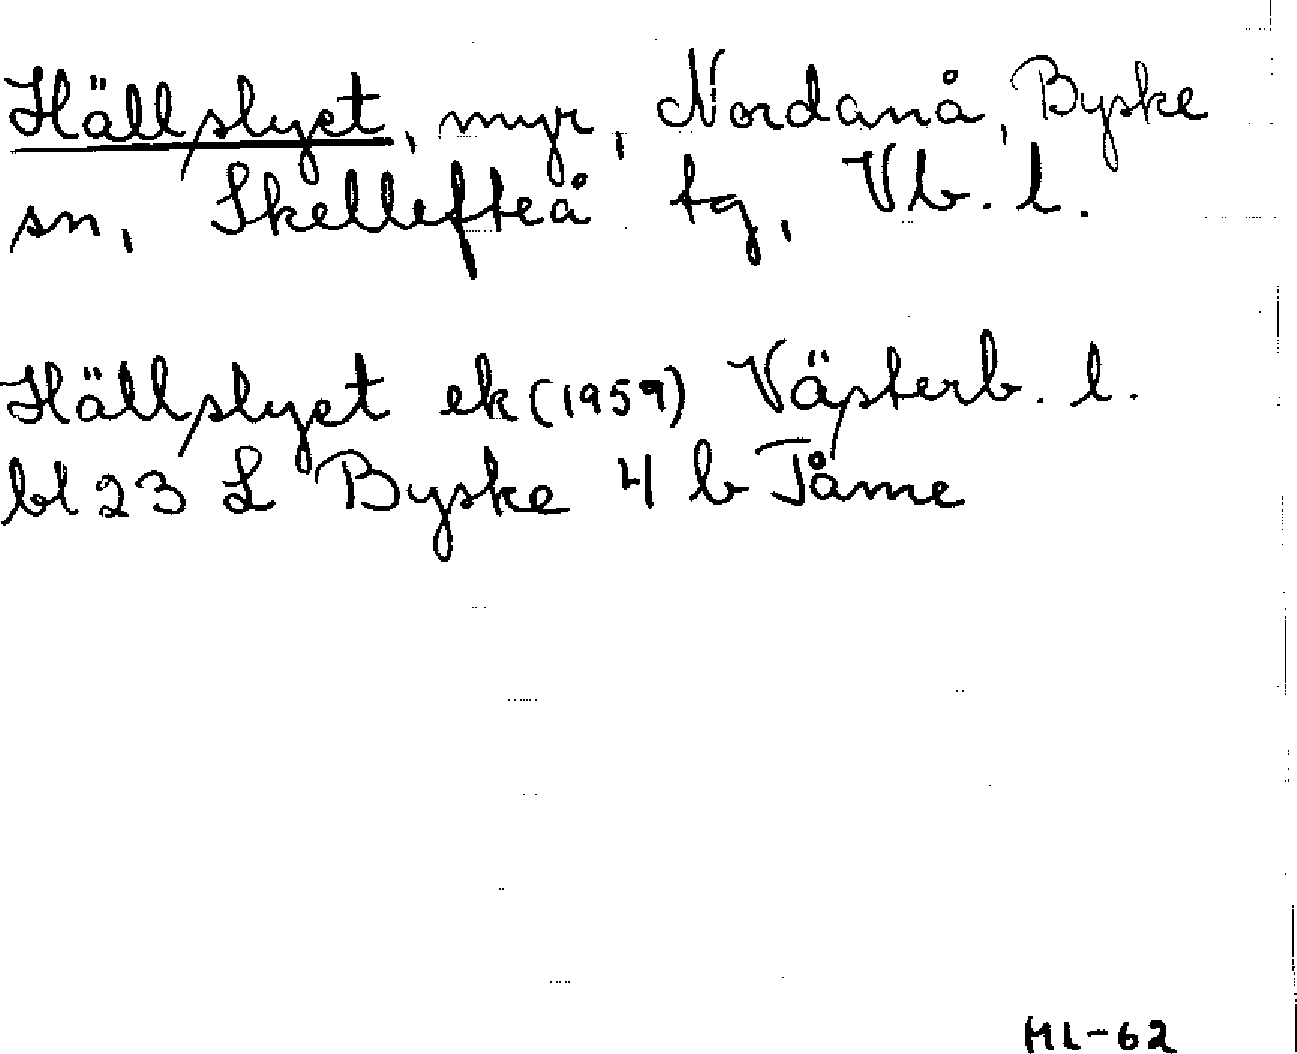 Hällslyet, myr, Nordanå, Byske
sn, Skellefteå tg, Vb. l.
Hällslyet ek (1959) Västerb. l.
bl 23 L Byske 4 b Tåme
ML-62